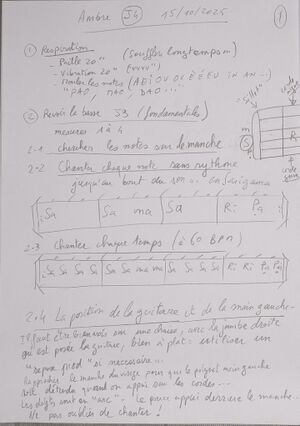 Ambre J4 15/10/2025
1
1 Respiration
- Paille 20" (Souffler longtemps)
- Vibration 20"
- Moduler les notes (A E I O U
" PAO, MAO, BAO...
2 Revoir la basse J3 (fondamentales)
mesures 1 à 4
2-1 chercher les notes sur le manche
2-2 Chanter chaque note sans rythme
jusqu'au bout du son
Sa Sa ma Sa Ri Pa
2-3 Chanter chaque temps (à 60 BPM)
Sa Sa Sa Sa Sa Sa ma ma Sa Sa Sa Sa Ri Ri Pa Pa
2.4 La position de la guitare et de la main gauche
Il faut être bien assis sur une chaise, avec la jambe droite
qui est posée la guitare, bien à plat: utiliser un
"repose pied" si nécessaire.
Rapprocher le manche du visage pour que le poignet main gauche
soit détendu quand on appuie sur les cordes...
Les doigts sont en "arc". Le pouce appuie derrière le manche.
Ne pas oublier de chanter!